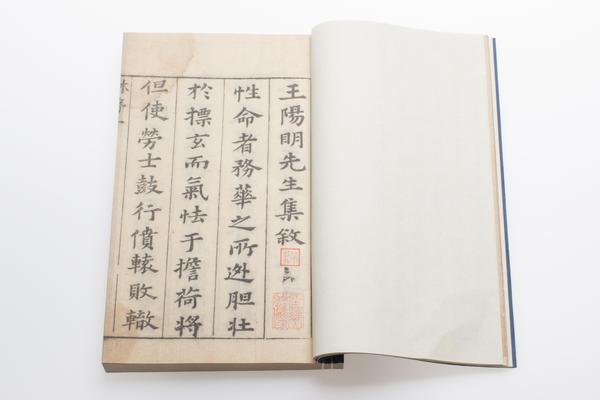 王陽明先生集敘
性命者務華之所迯胆壮
於標玄而氣怯于擔荷將
但使勞士鼓行僨轅敗轍